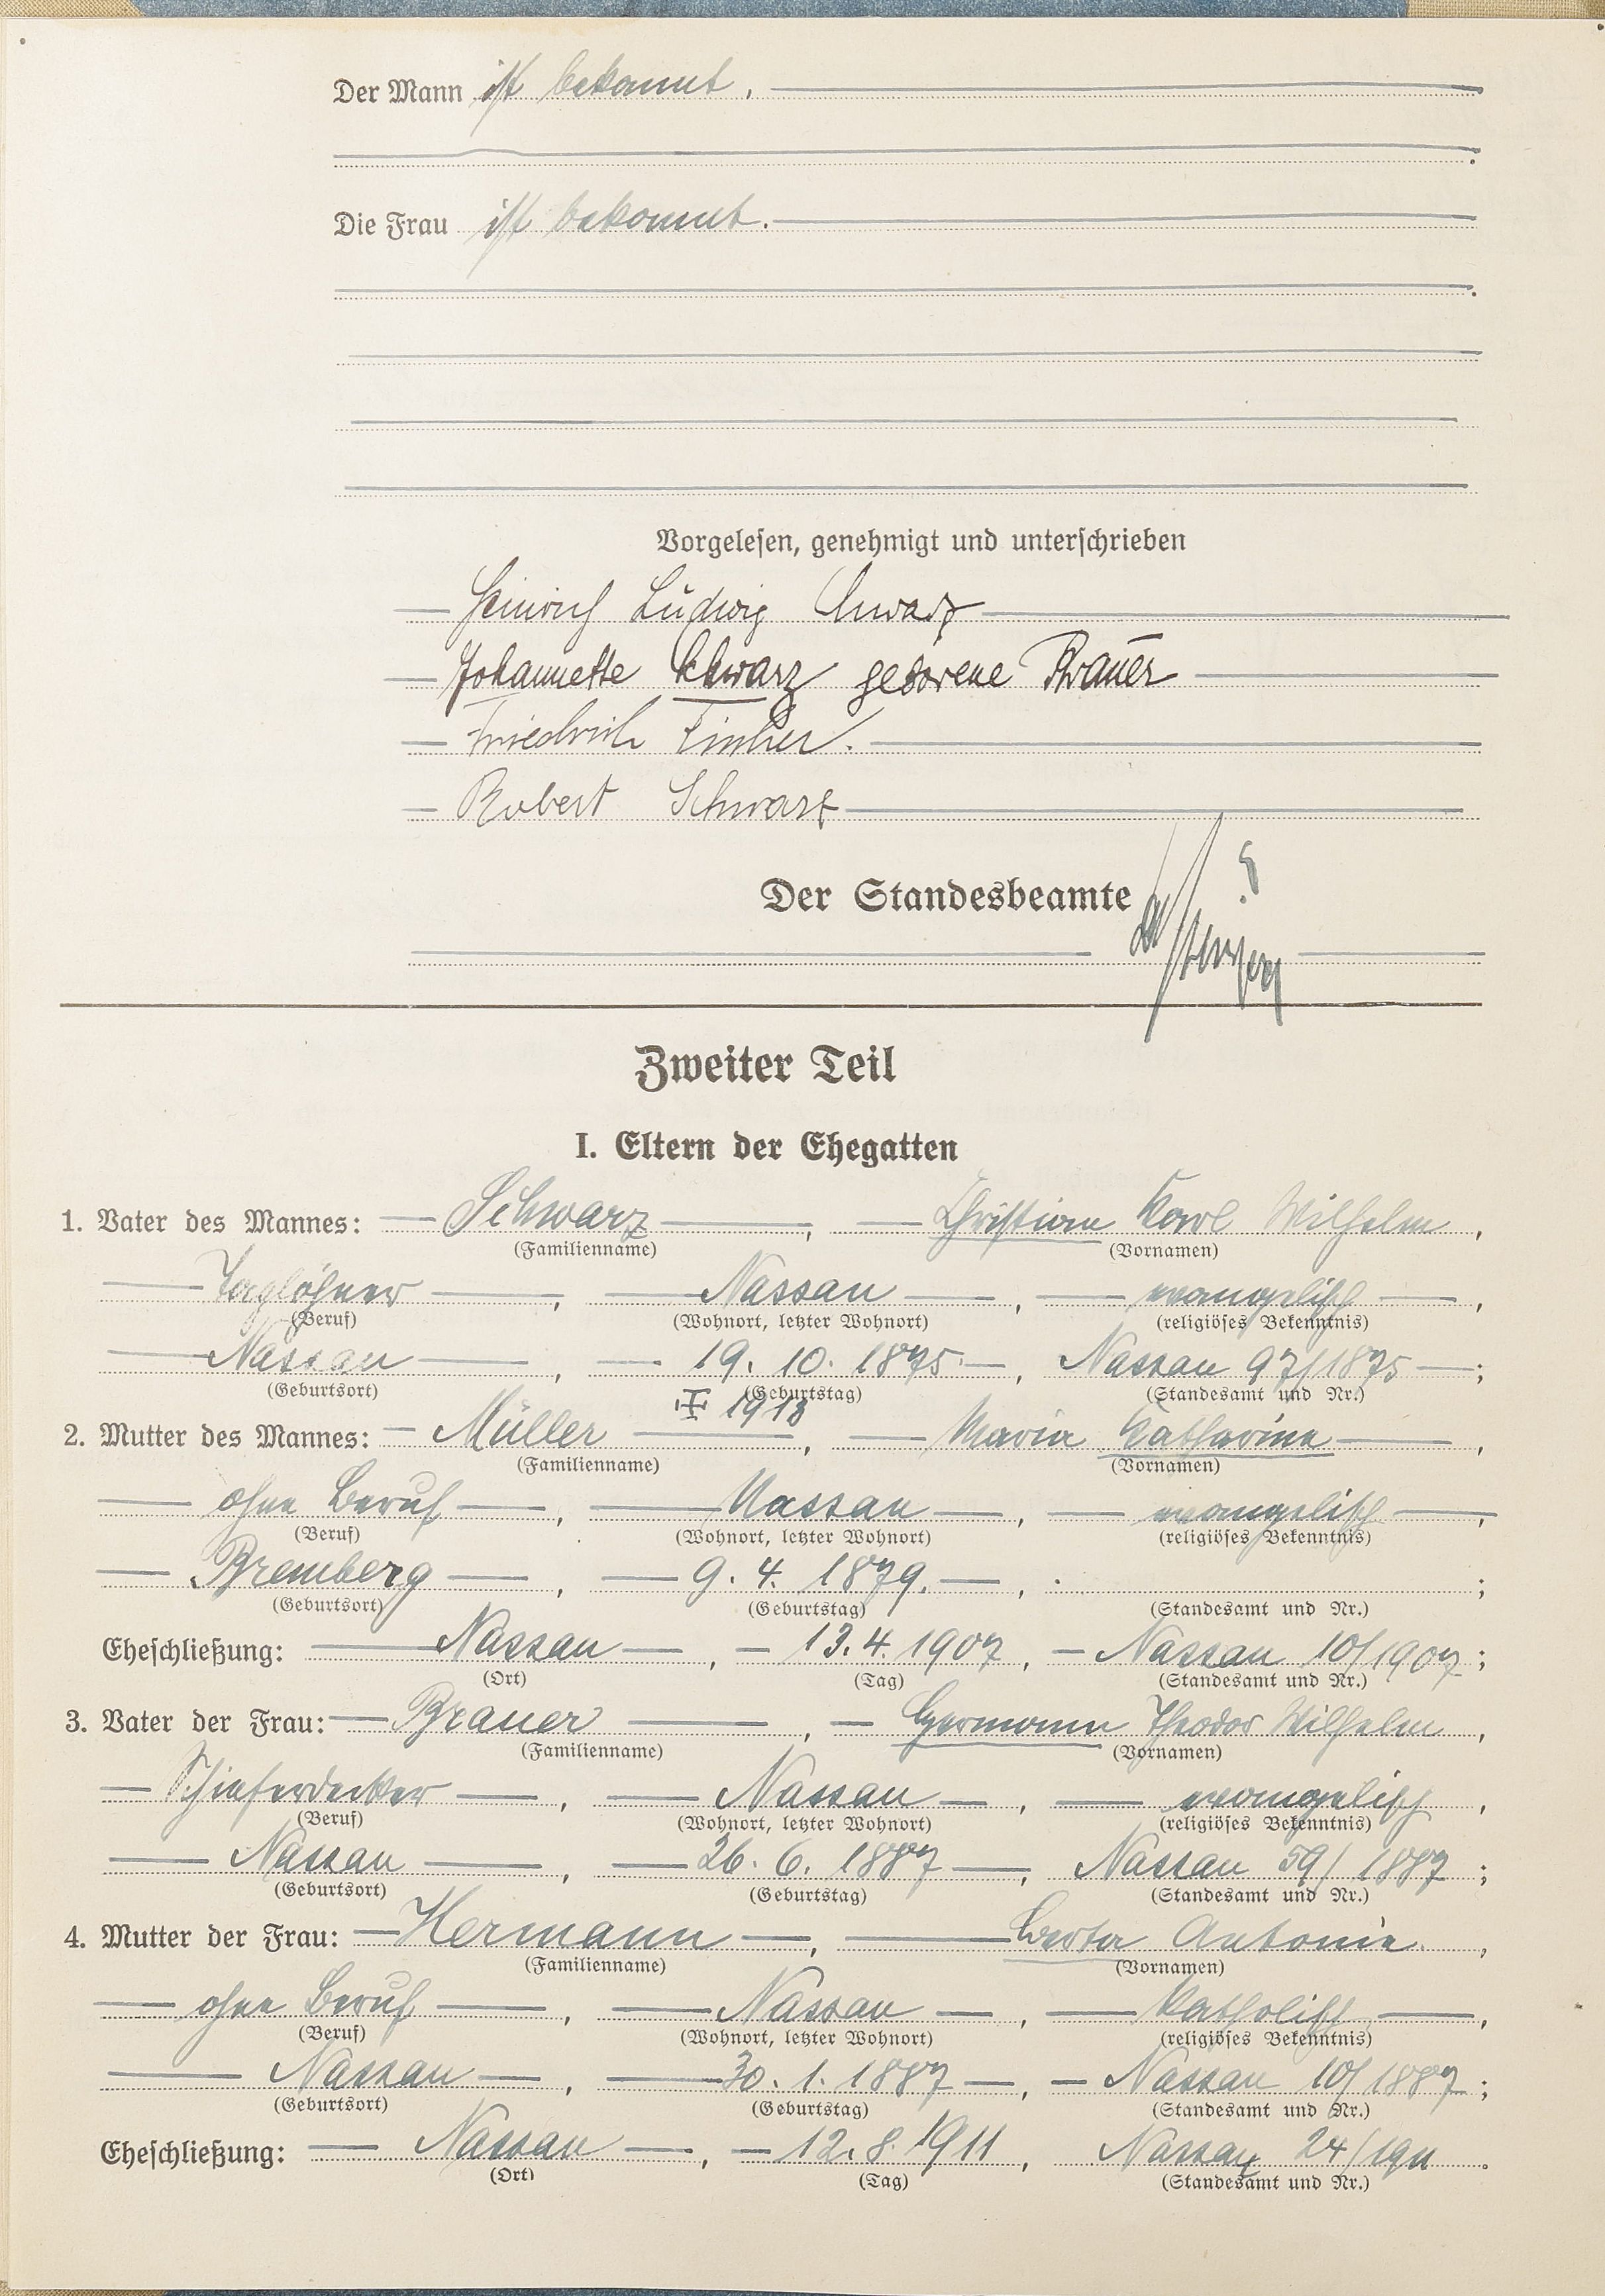 Der Mann ist bekannt.
Die Frau ist bekannt.
Vorgelesen, genehmigt und unterschrieben
Heinrich Ludwig Schwarz
Johannette Schwarz geborene Brauer
Friedrich
Robert Schwarz
Der Standesbeamte
Zweiter Teil
I. Eltern der Ehegatten
1. Vater des Mannes: Schwarz, Christian Karl Wilhelm,
(Familienname) (Vornamen)
Taglöhner, Nassau, evangelisch,
(Beruf) (Wohnort, letzter Wohnort) (religiöses Bekenntnis)
Nassau, 19. 10. 1875, Nassau 97/1875;
(Geburtsort) (Geburtstag) (Standesamt und Nr.)
1913
2. Mutter des Mannes: Müller, Maria Katharine,
(Familienname) (Vornamen)
ohne Beruf, Nassau, evangelisch,
(Beruf) (Wohnort, letzter Wohnort) (religiöses Bekenntnis)
Bremberg, 9. 4. 1879., ;
(Geburtsort) (Geburtstag) (Standesamt und Nr.)
Eheschließung: Nassau, 13. 4. 1907, Nassau 10/1907;
(Ort) (Tag) (Standesamt und Nr.)
3. Vater der Frau: Brauer, Hermann Theodor Wilhelm,
(Familienname) (Vornamen)
Schieferdecker, Nassau, evangelisch,
(Beruf) (Wohnort, letzter Wohnort) (religiöses Bekenntnis)
Nassau, 26. 6. 1887, Nassau 59/1887;
(Geburtsort) (Geburtstag) (Standesamt und Nr.)
4. Mutter der Frau: Hermann, Berta Antonie,
(Familienname) (Vornamen)
ohne Beruf, Nassau, katholisch,
(Beruf) (Wohnort, letzter Wohnort) (religiöses Bekenntnis)
Nassau, 30. 1. 1887, Nassau 10/1887;
(Geburtsort) (Geburtstag) (Standesamt und Nr.)
Eheschließung: Nassau, 12. 8. 1911, Nassau 24/1911.
(Ort) (Tag) (Standesamt und Nr.)